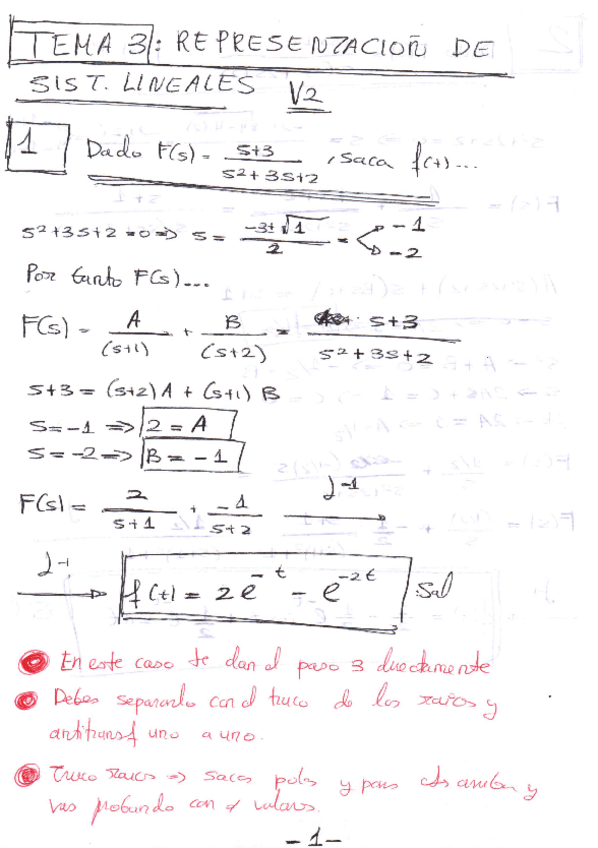 TEMA 3: REPRESENTACION DE
SIST. LINEALES V2
1 Dado F(s) = (s+3)/(s²+3s+2), saca f(t)...
s²+3s+2=0 => s = (-3±√1)/2 = -1
-2
Por tanto F(s)...
F(s) = A/(s+1) + B/(s+2) = s+3/(s²+3s+2)
s+3 = (s+2)A + (s+1)B
s=-1 => 2 = A
s=-2 => B = -1
F(s) = 2/(s+1) + -1/(s+2) L⁻¹ →
L⁻¹ → f(t) = 2e^-t - e^-2t Sol
En este caso te dan el paso 3 directamente
Debes separarlo con el truco de los raros y
antitransf uno a uno.
Truco raros => sacas polos y pones arriba y
vas probando con valores.
-1-